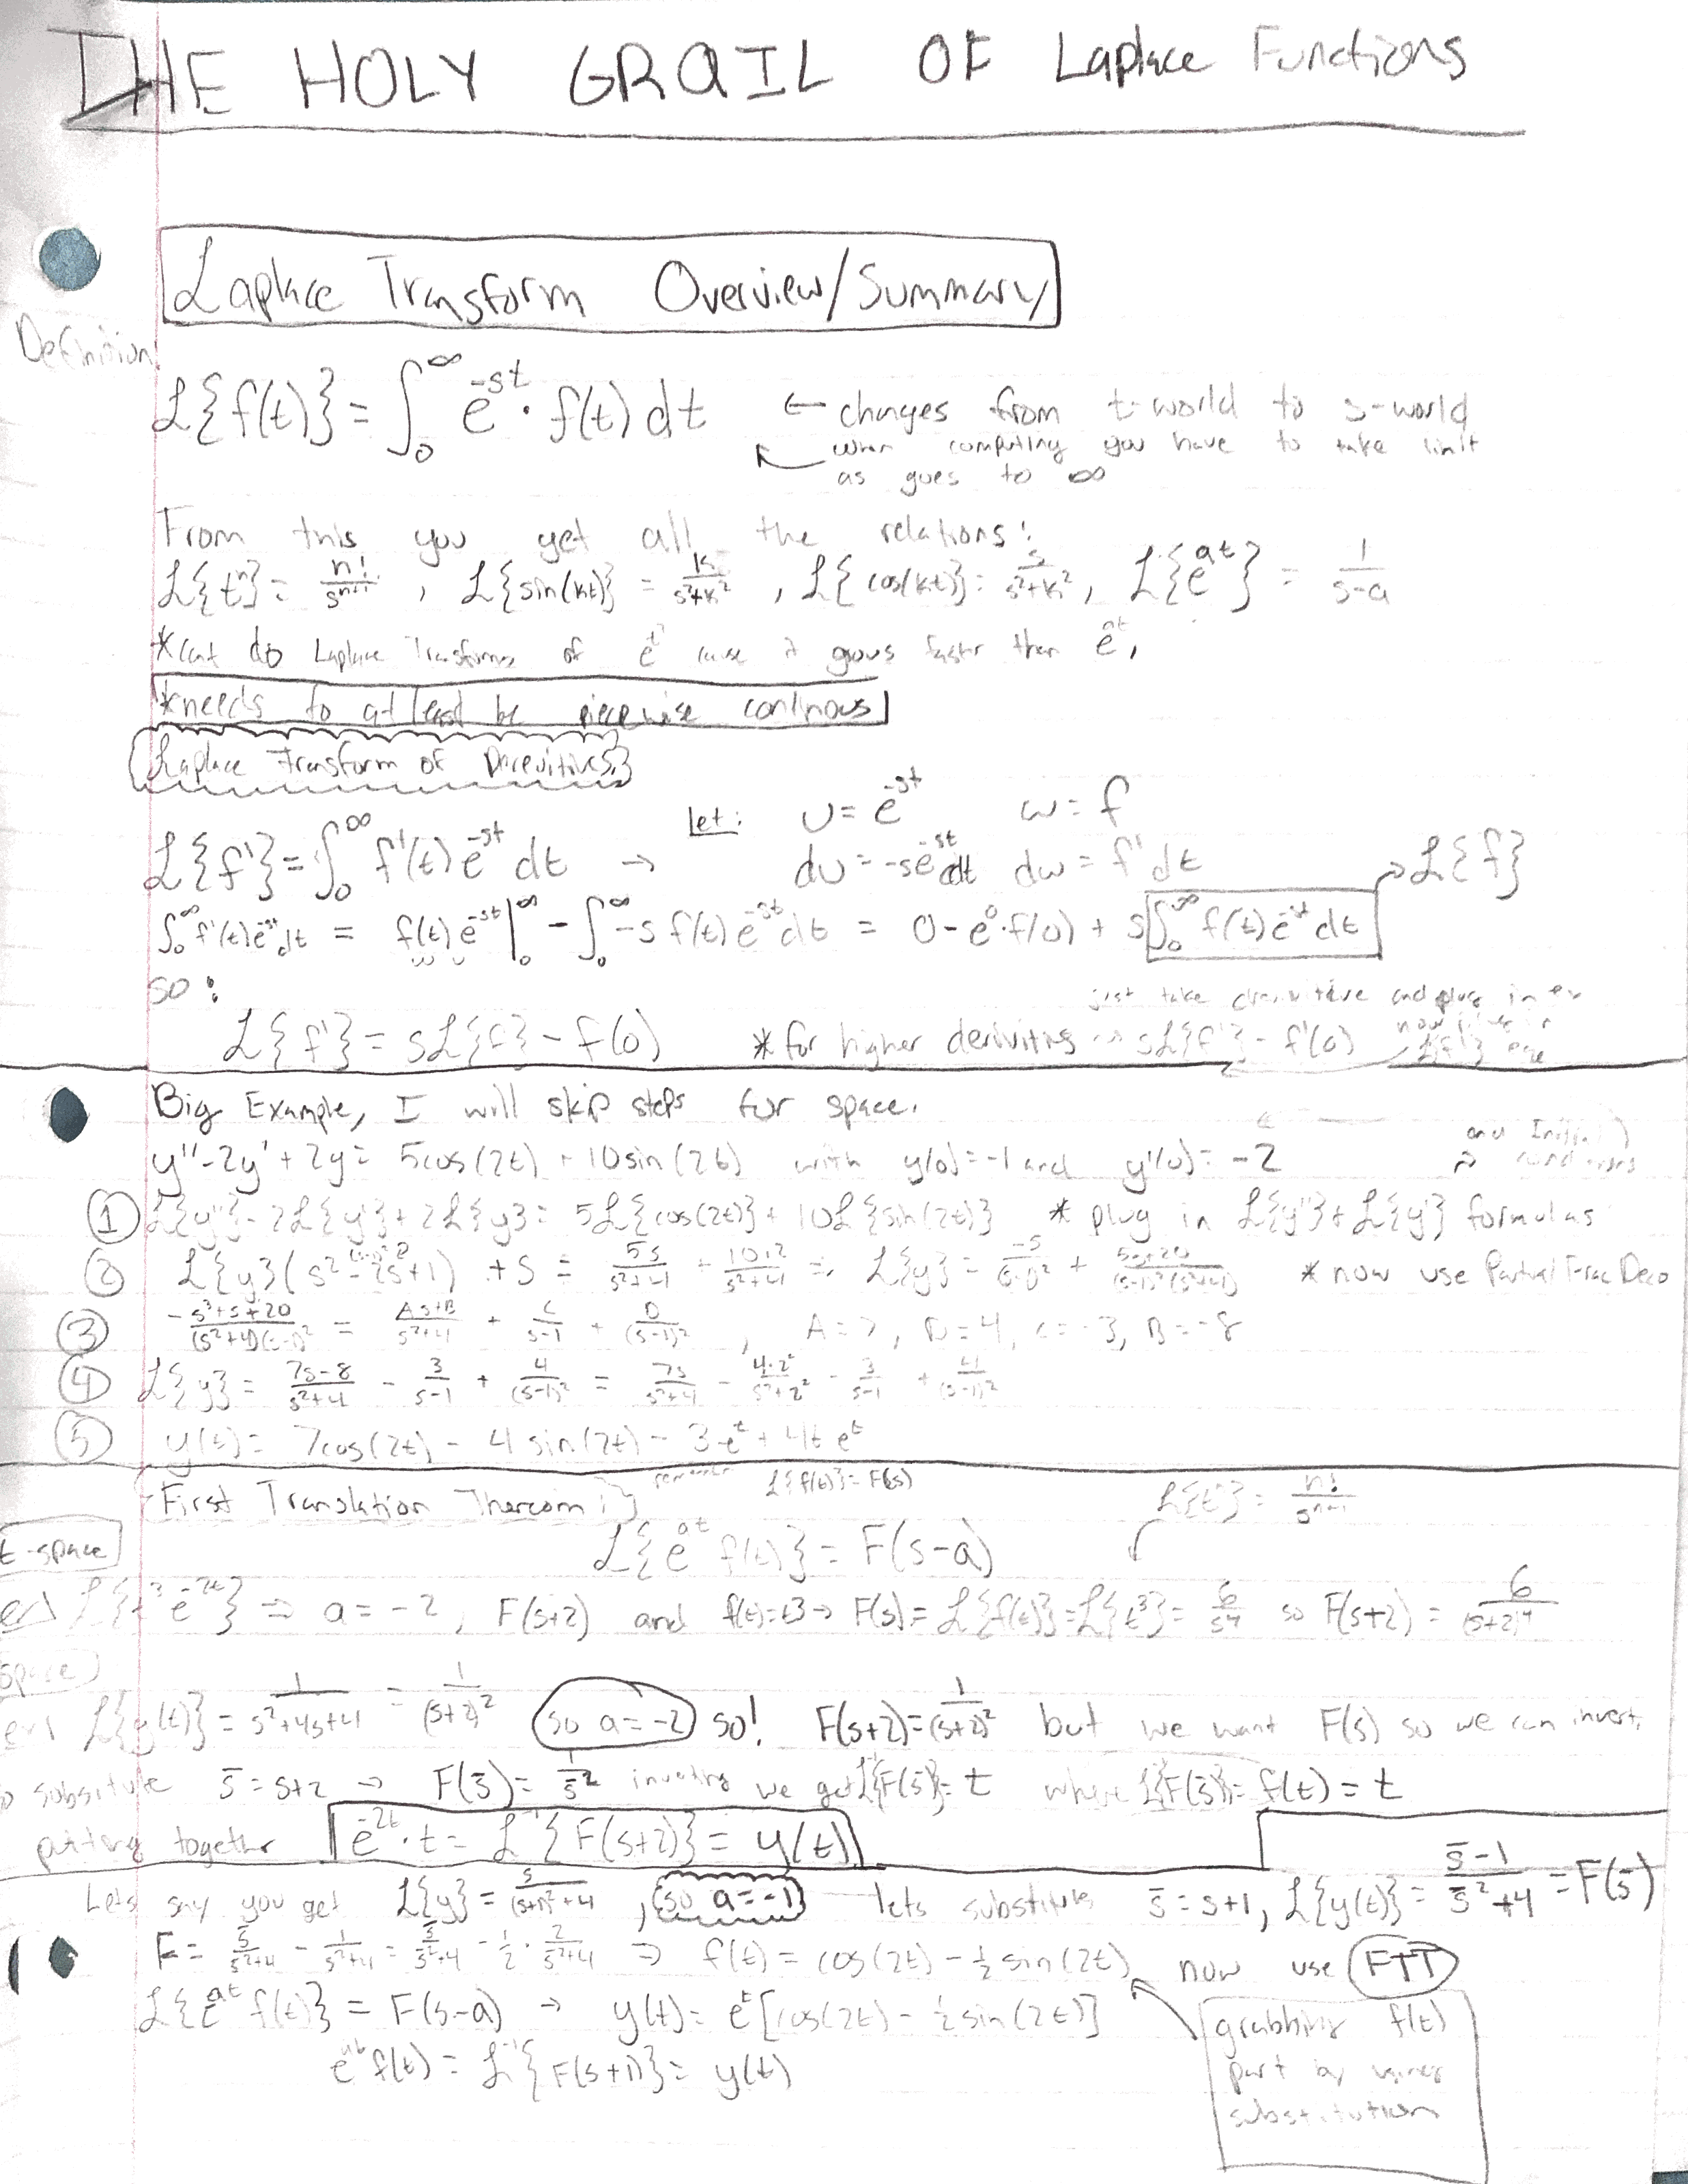 THE HOLY GRAIL OF Laplace Functions
Laplace Transform Overview/Summary
Definition
ℒ{f(t)} = ∫₀^∞ e^{-st} · f(t) dt ← changes from t-world to s-world
when computing you have to take limit
as goes to ∞
From this you get all the relations:
ℒ{t^n} = n!/s^{n+1} , ℒ{sin(kt)} = k/(s²+k²) , ℒ{cos(kt)} = s/(s²+k²), ℒ{e^{at}} = 1/(s-a)
*cant do Laplace Transforms of e^{t²} cause it grows faster than e^{at},
*needs to at least be piecewise continous
Laplace Transform of Derevitives
let: u = e^{-st} w = f
ℒ{f'} = ∫₀^∞ f'(t) e^{-st} dt → du = -se^{-st}dt dw = f' dt → ℒ{f}
∫₀^∞ f'(t)e^{-st}dt = f(t) e^{-st}|₀^∞ - ∫₀^∞ -s f(t) e^{-st} dt = 0 - e⁰·f(0) + s∫₀^∞ f(t) e^{-st} dt
so:
just take and plug in
ℒ{f'} = sℒ{f} - f(0) *for higher derivities sℒ{f'} - f'(0)
Big Example, I will skip steps for space.
y'' - 2y' + 2y = 5cos(2t) + 10sin(2t) with y(0) = -1 and y'(0) = -2
and Initial conditions
① ℒ{y''} - 2ℒ{y'} + 2ℒ{y} = 5ℒ{cos(2t)} + 10ℒ{sin(2t)} * plug in ℒ{y''} + ℒ{y'} formulas
② ℒ{y}(s² - 2s + 1) + s = 5s/(s²+4) + 10·2/(s²+4) ⇒ ℒ{y} = -s/(s-1)² + (5s+20)/((s-1)²(s²+4)) * now use Partial Frac Deco
③ (-s³+s+20)/((s²+4)(s-1)²) = (As+B)/(s²+4) + C/(s-1) + D/(s-1)² , A = 7, D = 4, C = -3, B = -8
④ ℒ{y} = (7s-8)/(s²+4) - 3/(s-1) + 4/(s-1)² = 7s/(s²+4) - 4·2/(s²+2²) - 3/(s-1) + 4/(s-1)²
⑤ y(t) = 7cos(2t) - 4 sin(2t) - 3e^t + 4t e^t
First Translation Thercom: remember ℒ{f(t)} = F(s) ℒ{t^n} = n!/s^{n+1}
t-space
ℒ{e^{at} f(t)} = F(s-a)
ex) ℒ{t³ e^{-2t}} ⇒ a = -2, F(s+2) and f(t) = t3 → F(s) = ℒ{f(t)} = ℒ{t³} = 6/s4 so F(s+2) = 6/(s+2)^4
space
ex) ℒ{y(t)} = 1/(s²+4s+4) = 1/(s+2)² so a = -2 so! F(s+2) = 1/(s+2)² but we want F(s) so we can invert,
so subsitute s̄ = s+2 → F(s̄) = 1/s̄² inverting we get ℒ⁻¹{F(s̄)} = t where ℒ⁻¹{F(s̄)} = f(t) = t
putting together e^{-2t} · t = ℒ⁻¹{F(s+2)} = y(t)
Lets say you get ℒ{y} = s/((s+1)²+4) , so a = -1 lets substitute s̄ = s+1, ℒ{y(t)} = (s̄-1)/(s̄²+4) = F(s̄)
F = s̄/(s̄²+4) - 1/(s̄²+4) = s̄/(s̄²+4) - 1/2 · 2/(s̄²+4) ⇒ f(t) = cos(2t) - ½ sin(2t) now use FTT
ℒ{e^{at} f(t)} = F(s-a) → y(t) = e^t [cos(2t) - ½ sin(2t)]
e^{at} f(t) = ℒ⁻¹{F(s+1)} = y(t)
grabbing f(t)
part by using
substitution